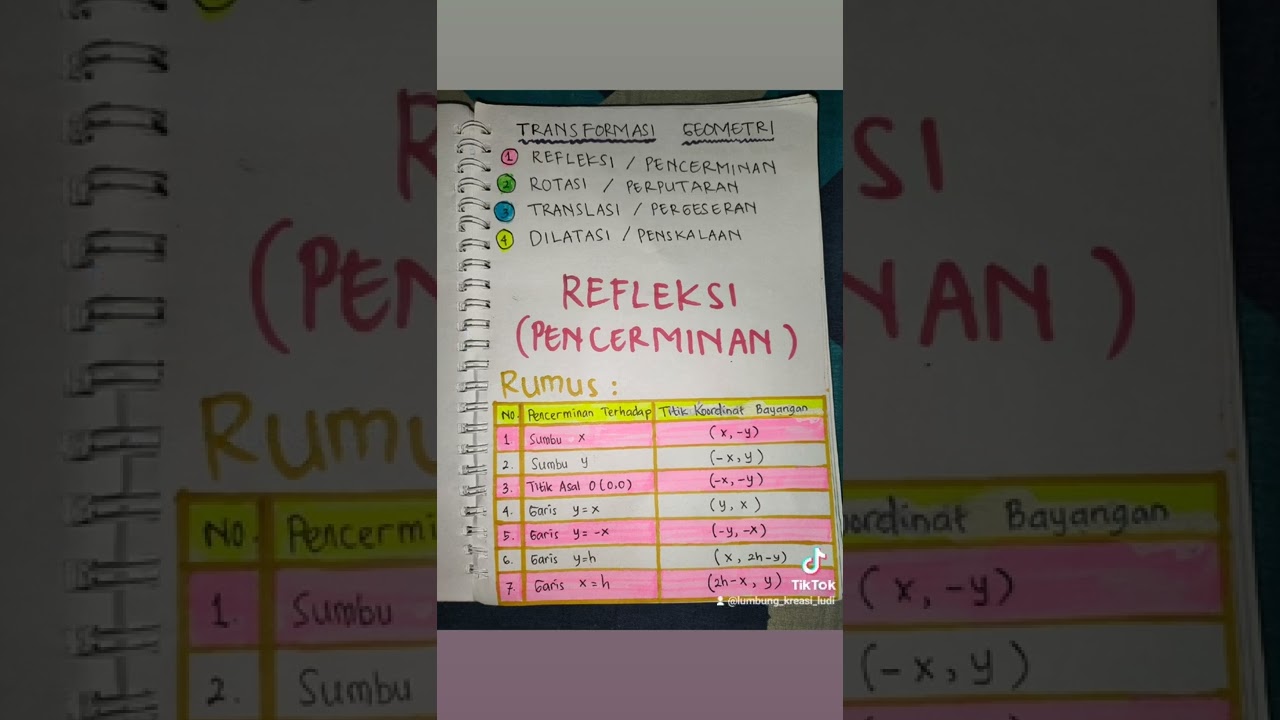 TRANSFORMASI GEOMETRI
1 REFLEKSI / PENCERMINAN
2 ROTASI / PERPUTARAN
3 TRANSLASI / PERGESERAN
4 DILATASI / PENSKALAAN
REFLEKSI
(PENCERMINAN)
Rumus :
NO. Pencerminan Terhadap Titik Koordinat Bayangan
1. Sumbu x (x, -y)
2. Sumbu y (-x, y)
3. Titik Asal O (0,0) (-x, -y)
4. Garis y=x (y, x)
5. Garis y= -x (-y, -x)
6. Garis y=h (x, 2h-y)
7. Garis x=h (2h-x, y)
TikTok
@lumbung_kreasi_ludi